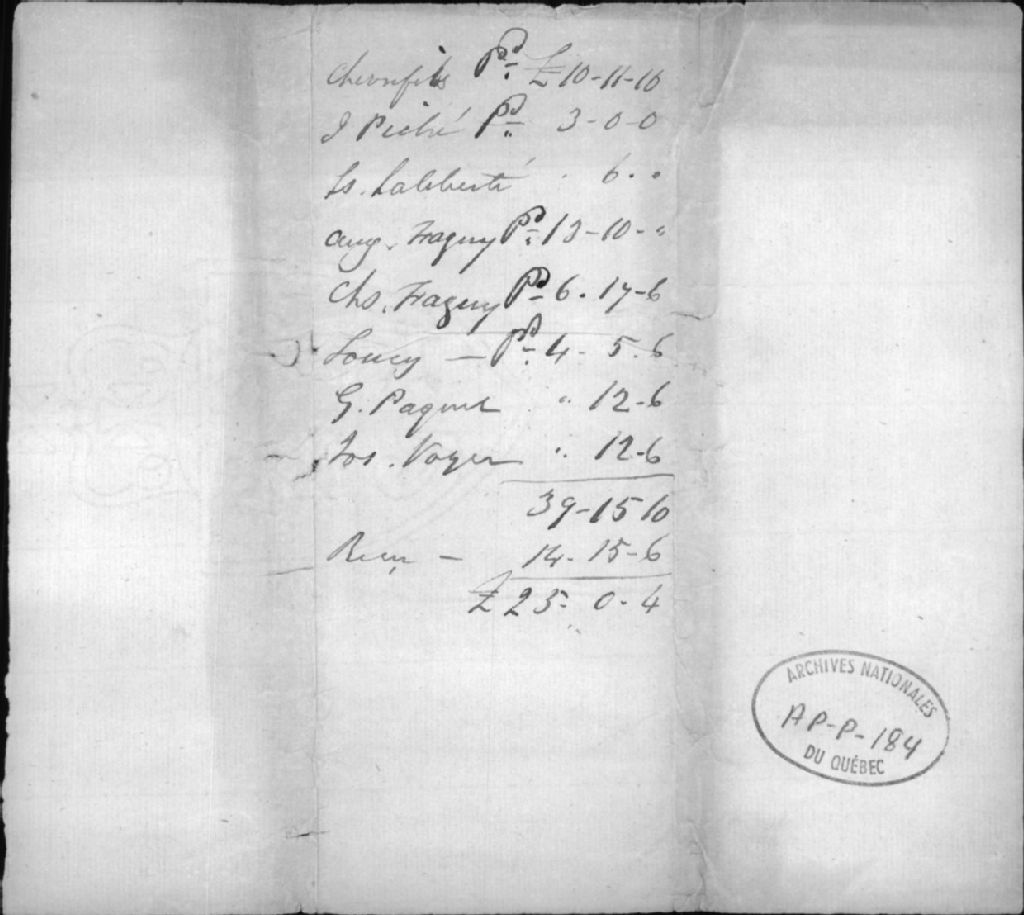 Chevrefils Pd £ 10-11-10
J Piché Pd 3-0-0
Ls. Laliberté " 6. "
Aug. Fraguy Pd 13-10-"
Chs. Fraguy Pd 6. 17-6
Soucy — Pd 4. 5. 6
G. Paquet " 12-6
Jos. Voyer " 12-6
39-15 10
14. 15-6
£ 25. 0. 4
ARCHIVES NATIONALES
AP-P-184
DU QUÉBEC